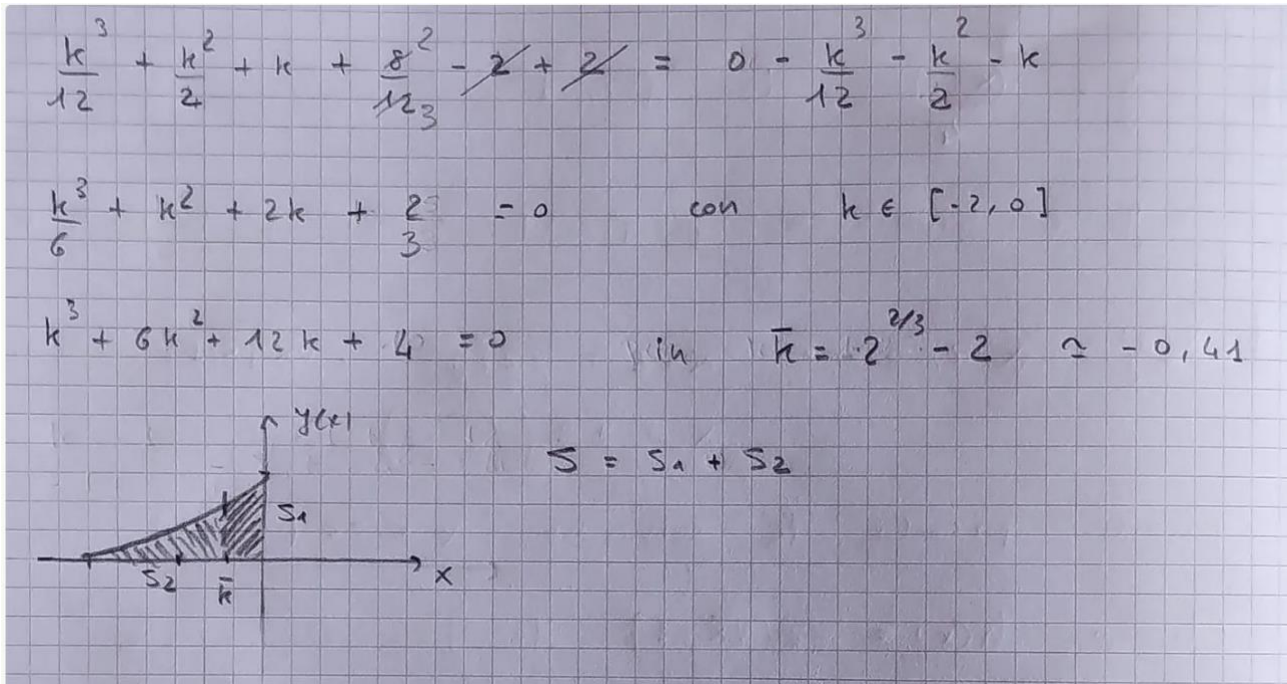 k³/12 + k²/2 + k + 8²/12₃ - 2 + 2 = 0 - k³/12 - k²/2 - k
k³/6 + k² + 2k + 2/3 = 0 con k ∈ [-2, 0]
k³ + 6k² + 12k + 4 = 0 in k̄ = 2^(2/3) - 2 ≃ -0,41
y(x)
S = S₁ + S₂
S₁
S₂ k̄ x